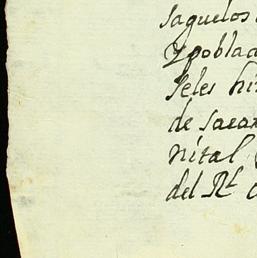 saquelos
ypoblad
seles hi
de sacar
nital
del Rl